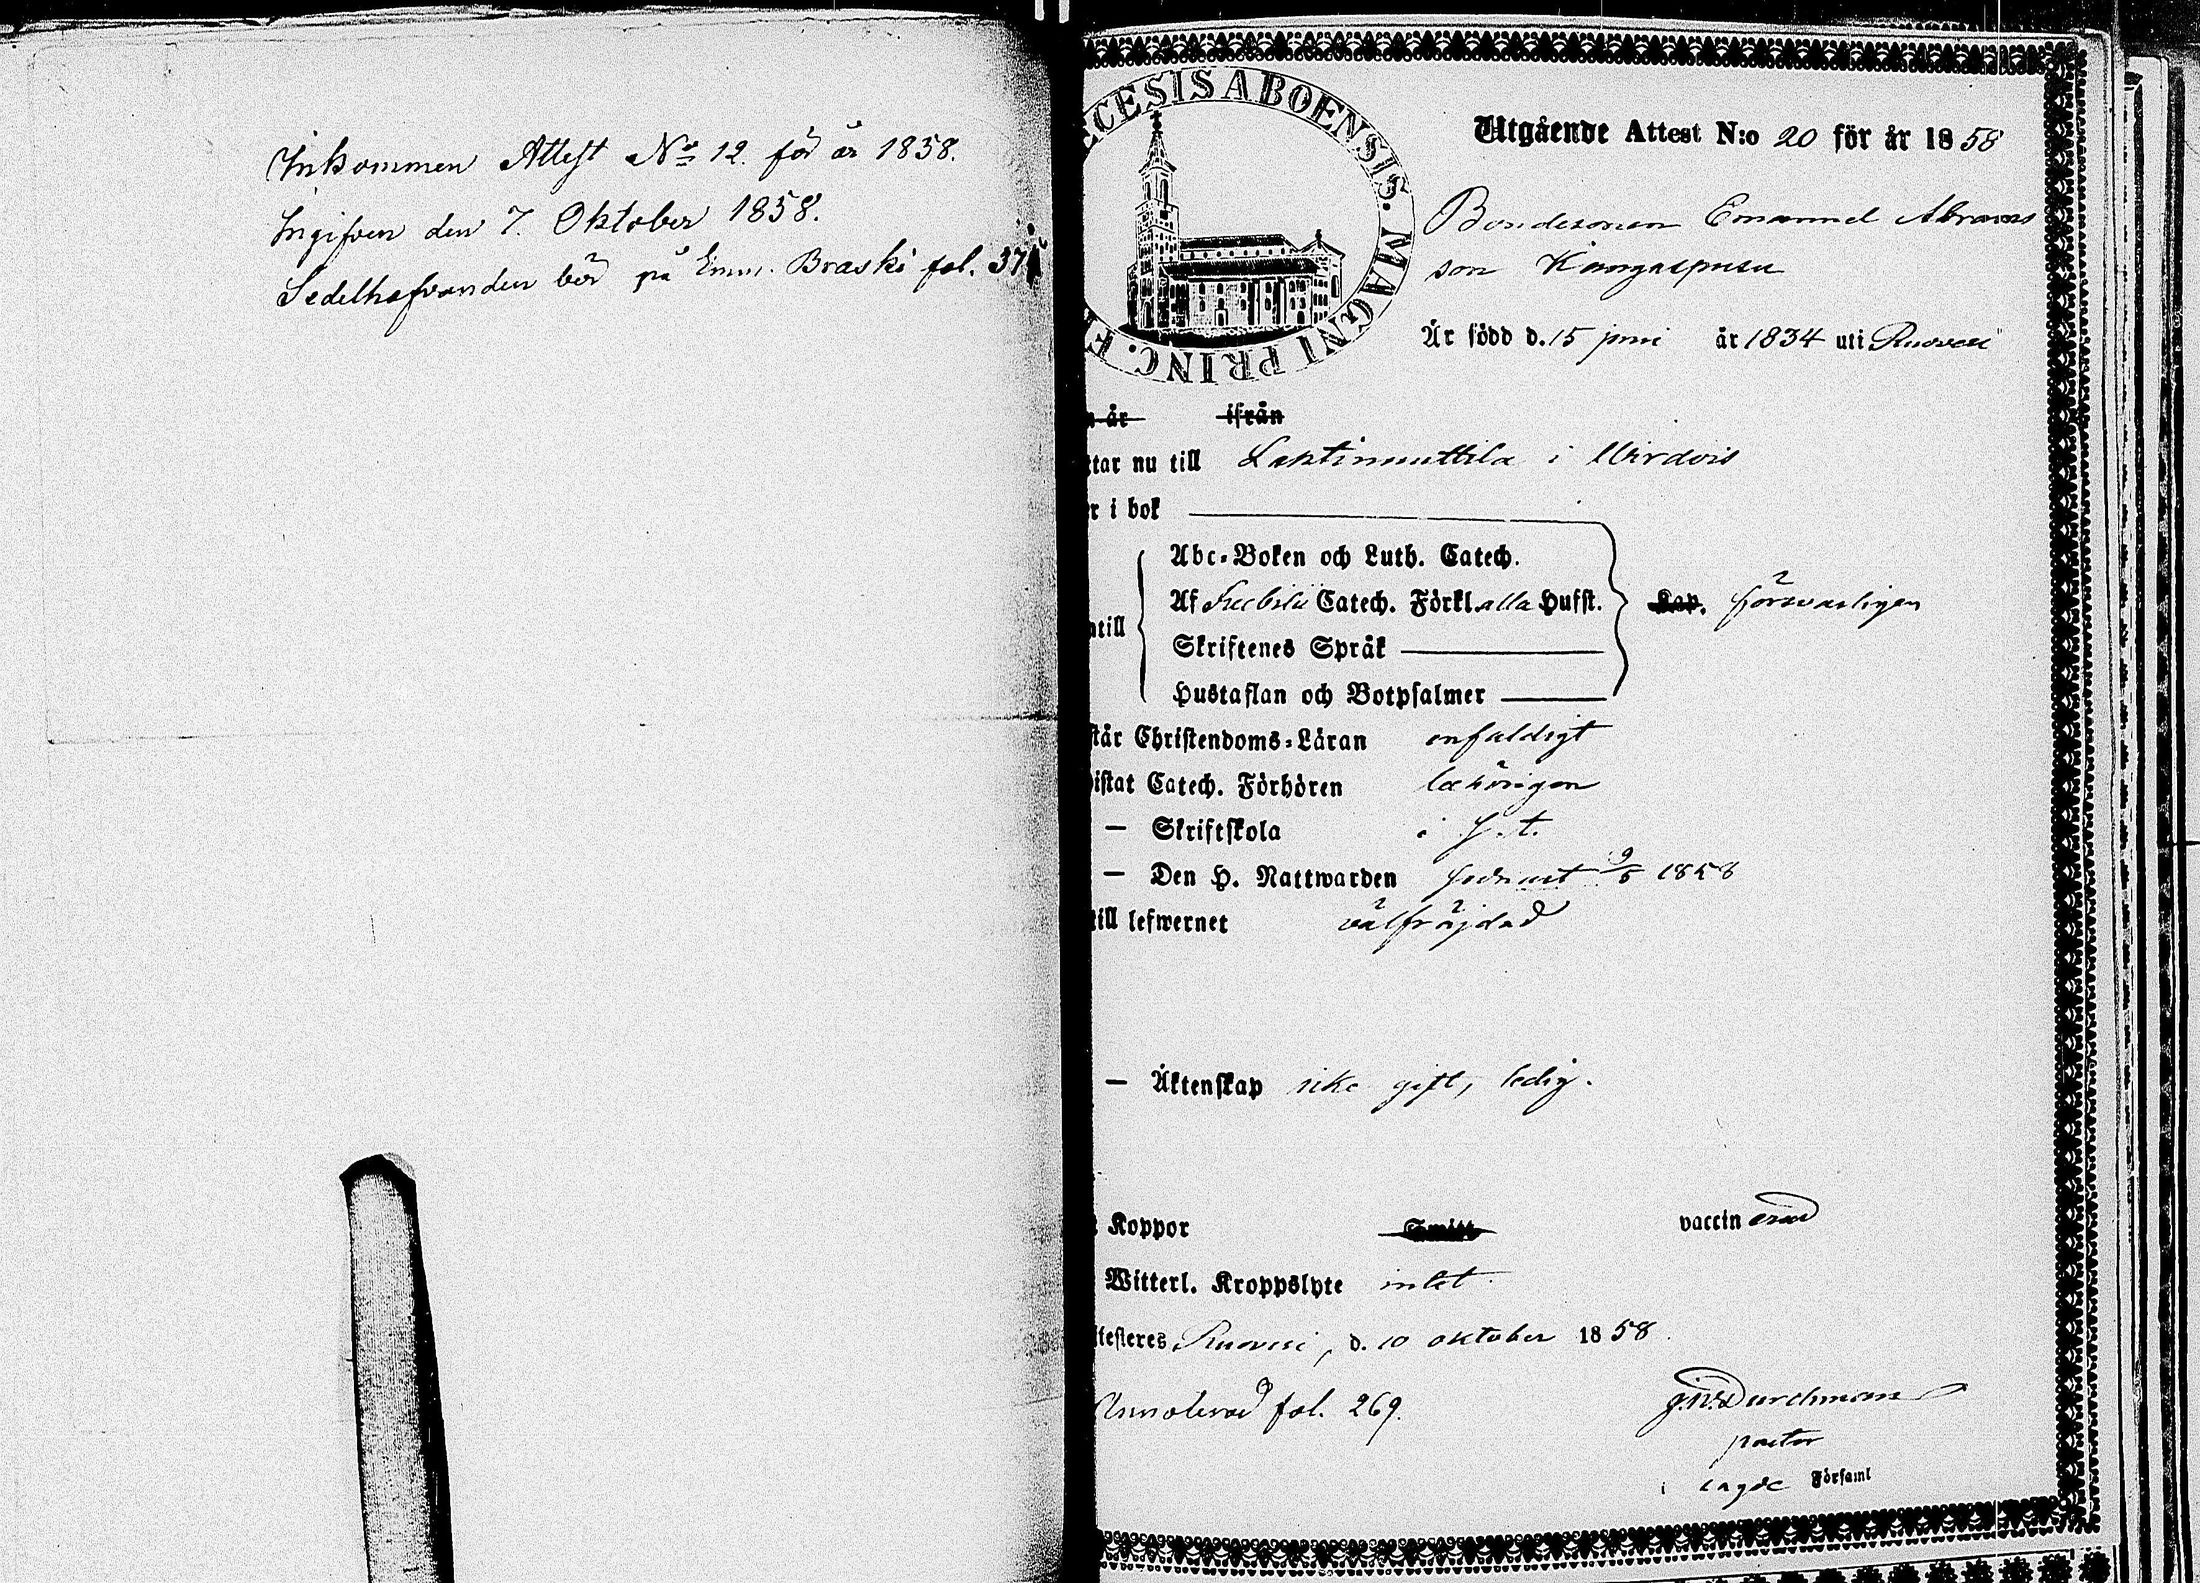 Inkommen Attest No 12 för år 1858.
Ingifven den 7. Oktober 1858.
Sedelhafvanden bör på Emm. Braski fol. 37
CESIS ABOENSIS. MAGNI PRINC. F
Utgående Attest N:o 20 för år 1858
Bondesonen Emanuel Abrams
son Kangaspusu
Är född d. 15 juni år 1834 uti Ruovesi
år ifrån
tar nu till i Wirdois
r i bok
Abc-Boken och Luth. Catech.
Af Svebilii Catech. Förkl. alla Hufst. Kap. försvarligen
till
Skriftenes Språk
Hustaflan och Botpsalmer
står Christendoms-Läran enfaldigt
istat Catech. Förhören behörigen
— Skriftskola i s. t.
— Den H. Nattwarden sednast 9/5 1858
till lefwernet välfräjdad
— Äktenskap icke gift, ledig.
Koppor Smitt vaccin erad
Witterl. Kroppslyte intet.
ttesteres Ruovesi, d. 10 oktober 1858.
Annoterad fol. 269.
G.W. Durchman
pastor
i Församl